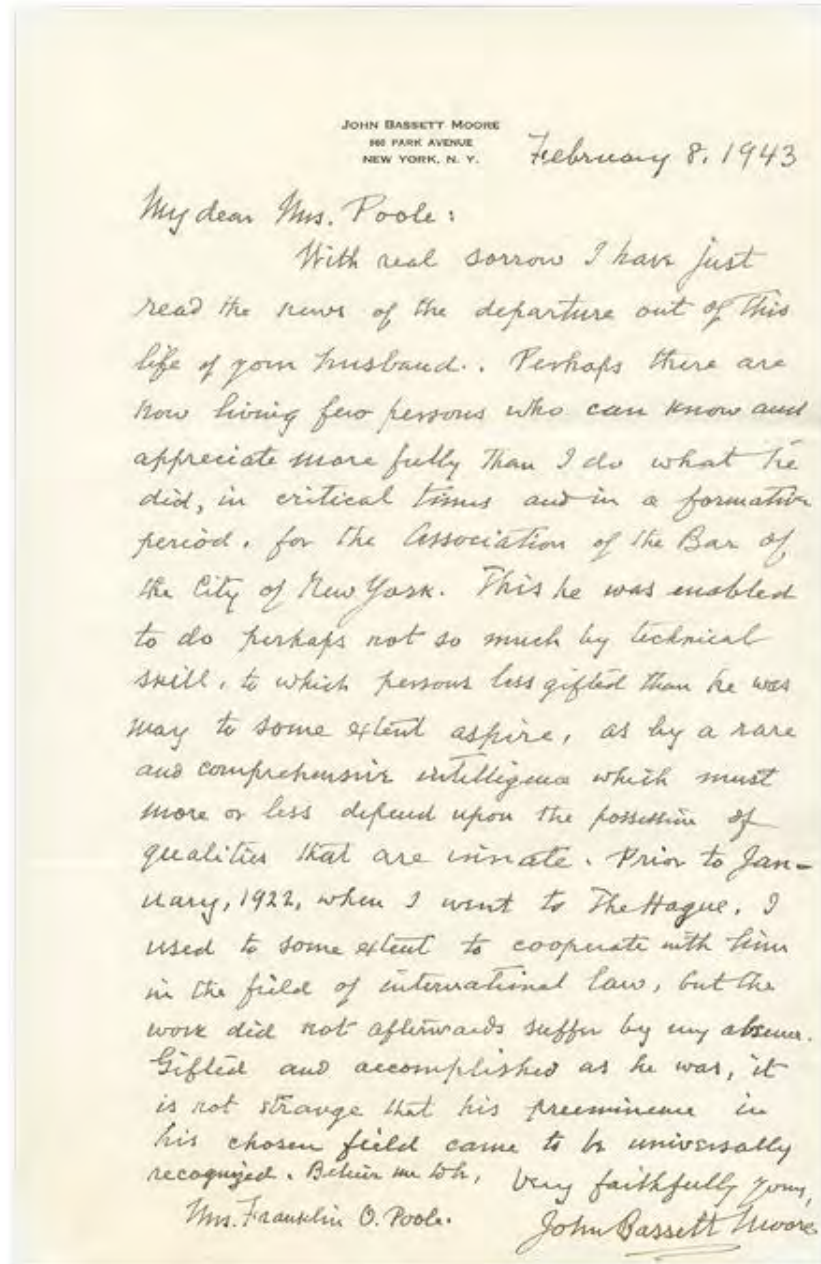 JOHN BASSETT MOORE
960 PARK AVENUE
NEW YORK, N. Y.
February 8, 1943
My dear Mrs. Poole:
With real sorrow I have just
read the news of the departure out of this
life of your husband. Perhaps there are
now living few persons who can know and
appreciate more fully than I do what he
did, in critical times and in a formative
period, for the Association of the Bar of
the City of New York. This he was enabled
to do perhaps not so much by technical
skill, to which persons less gifted than he was
may to some extent aspire, as by a rare
and comprehensive intelligence which must
more or less depend upon the possession of
qualities that are innate. Prior to Jan-
uary, 1922, when I went to The Hague, I
used to some extent to cooperate with him
in the field of international law, but the
work did not afterwards suffer by my absence.
Gifted and accomplished as he was, it
is not strange that his preeminence in
his chosen field came to be universally
recognized. Believe me to be,
Very faithfully yours,
Mrs. Franklin O. Poole.
John Bassett Moore